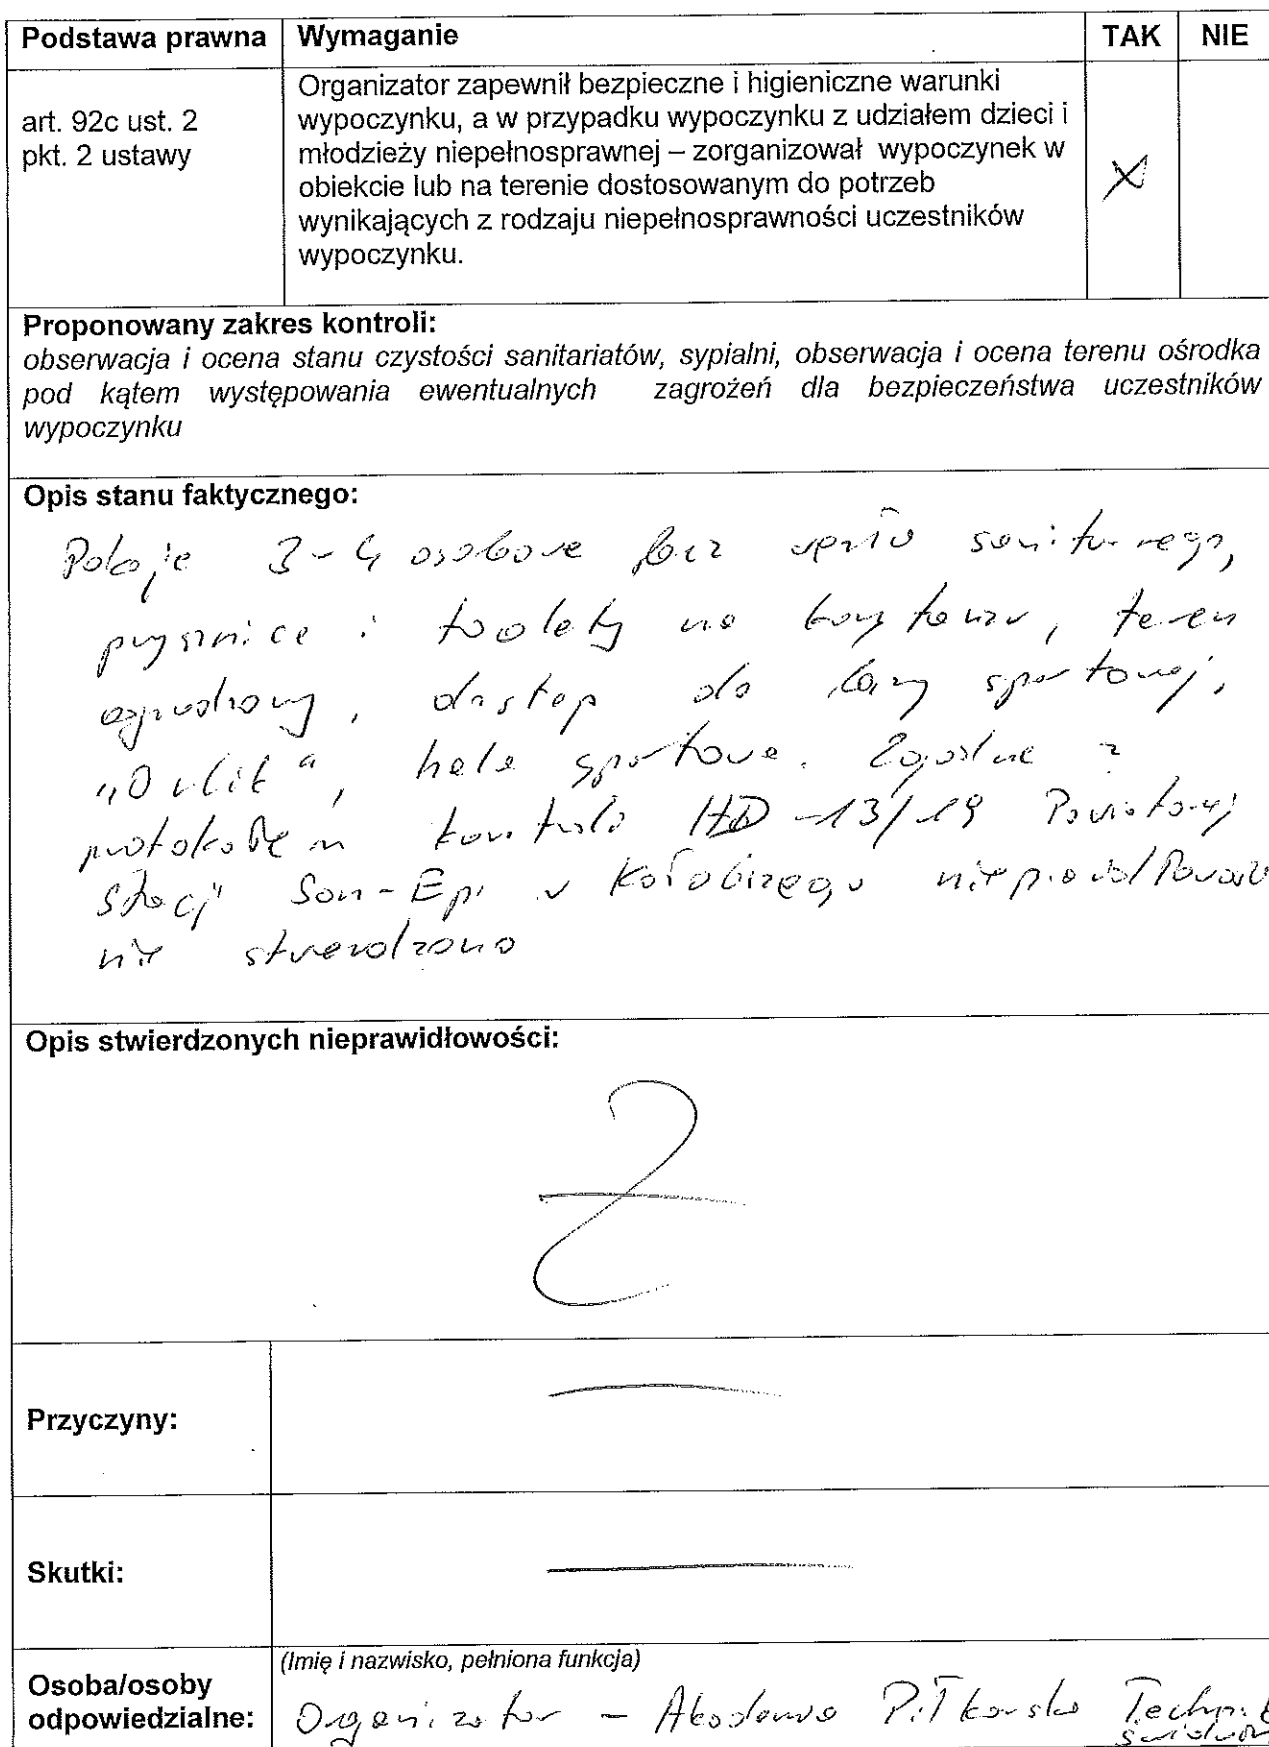 Podstawa prawna Wymaganie TAK NIE
art. 92c ust. 2
pkt. 2 ustawy
Organizator zapewnił bezpieczne i higieniczne warunki
wypoczynku, a w przypadku wypoczynku z udziałem dzieci i
młodzieży niepełnosprawnej – zorganizował wypoczynek w
obiekcie lub na terenie dostosowanym do potrzeb
wynikających z rodzaju niepełnosprawności uczestników
wypoczynku.
X
Proponowany zakres kontroli:
obserwacja i ocena stanu czystości sanitariatów, sypialni, obserwacja i ocena terenu ośrodka
pod kątem występowania ewentualnych zagrożeń dla bezpieczeństwa uczestników
wypoczynku
Opis stanu faktycznego:
Pokoje 3-4 osobowe bez węzła sanitarnego,
prysznice i toalety na korytarzu, teren
ogrodzony, dostęp do bazy sportowej,
„Orlik", hala sportowa. Zgodnie z
protokołem kontroli HD-13/19 Powiatowej
Stacji San-Epi w Kołobrzegu nieprawidłowości
nie stwierdzono
Opis stwierdzonych nieprawidłowości:
Przyczyny:
Skutki:
Osoba/osoby
odpowiedzialne:
(Imię i nazwisko, pełniona funkcja)
Organizator – Akademia Piłkarska